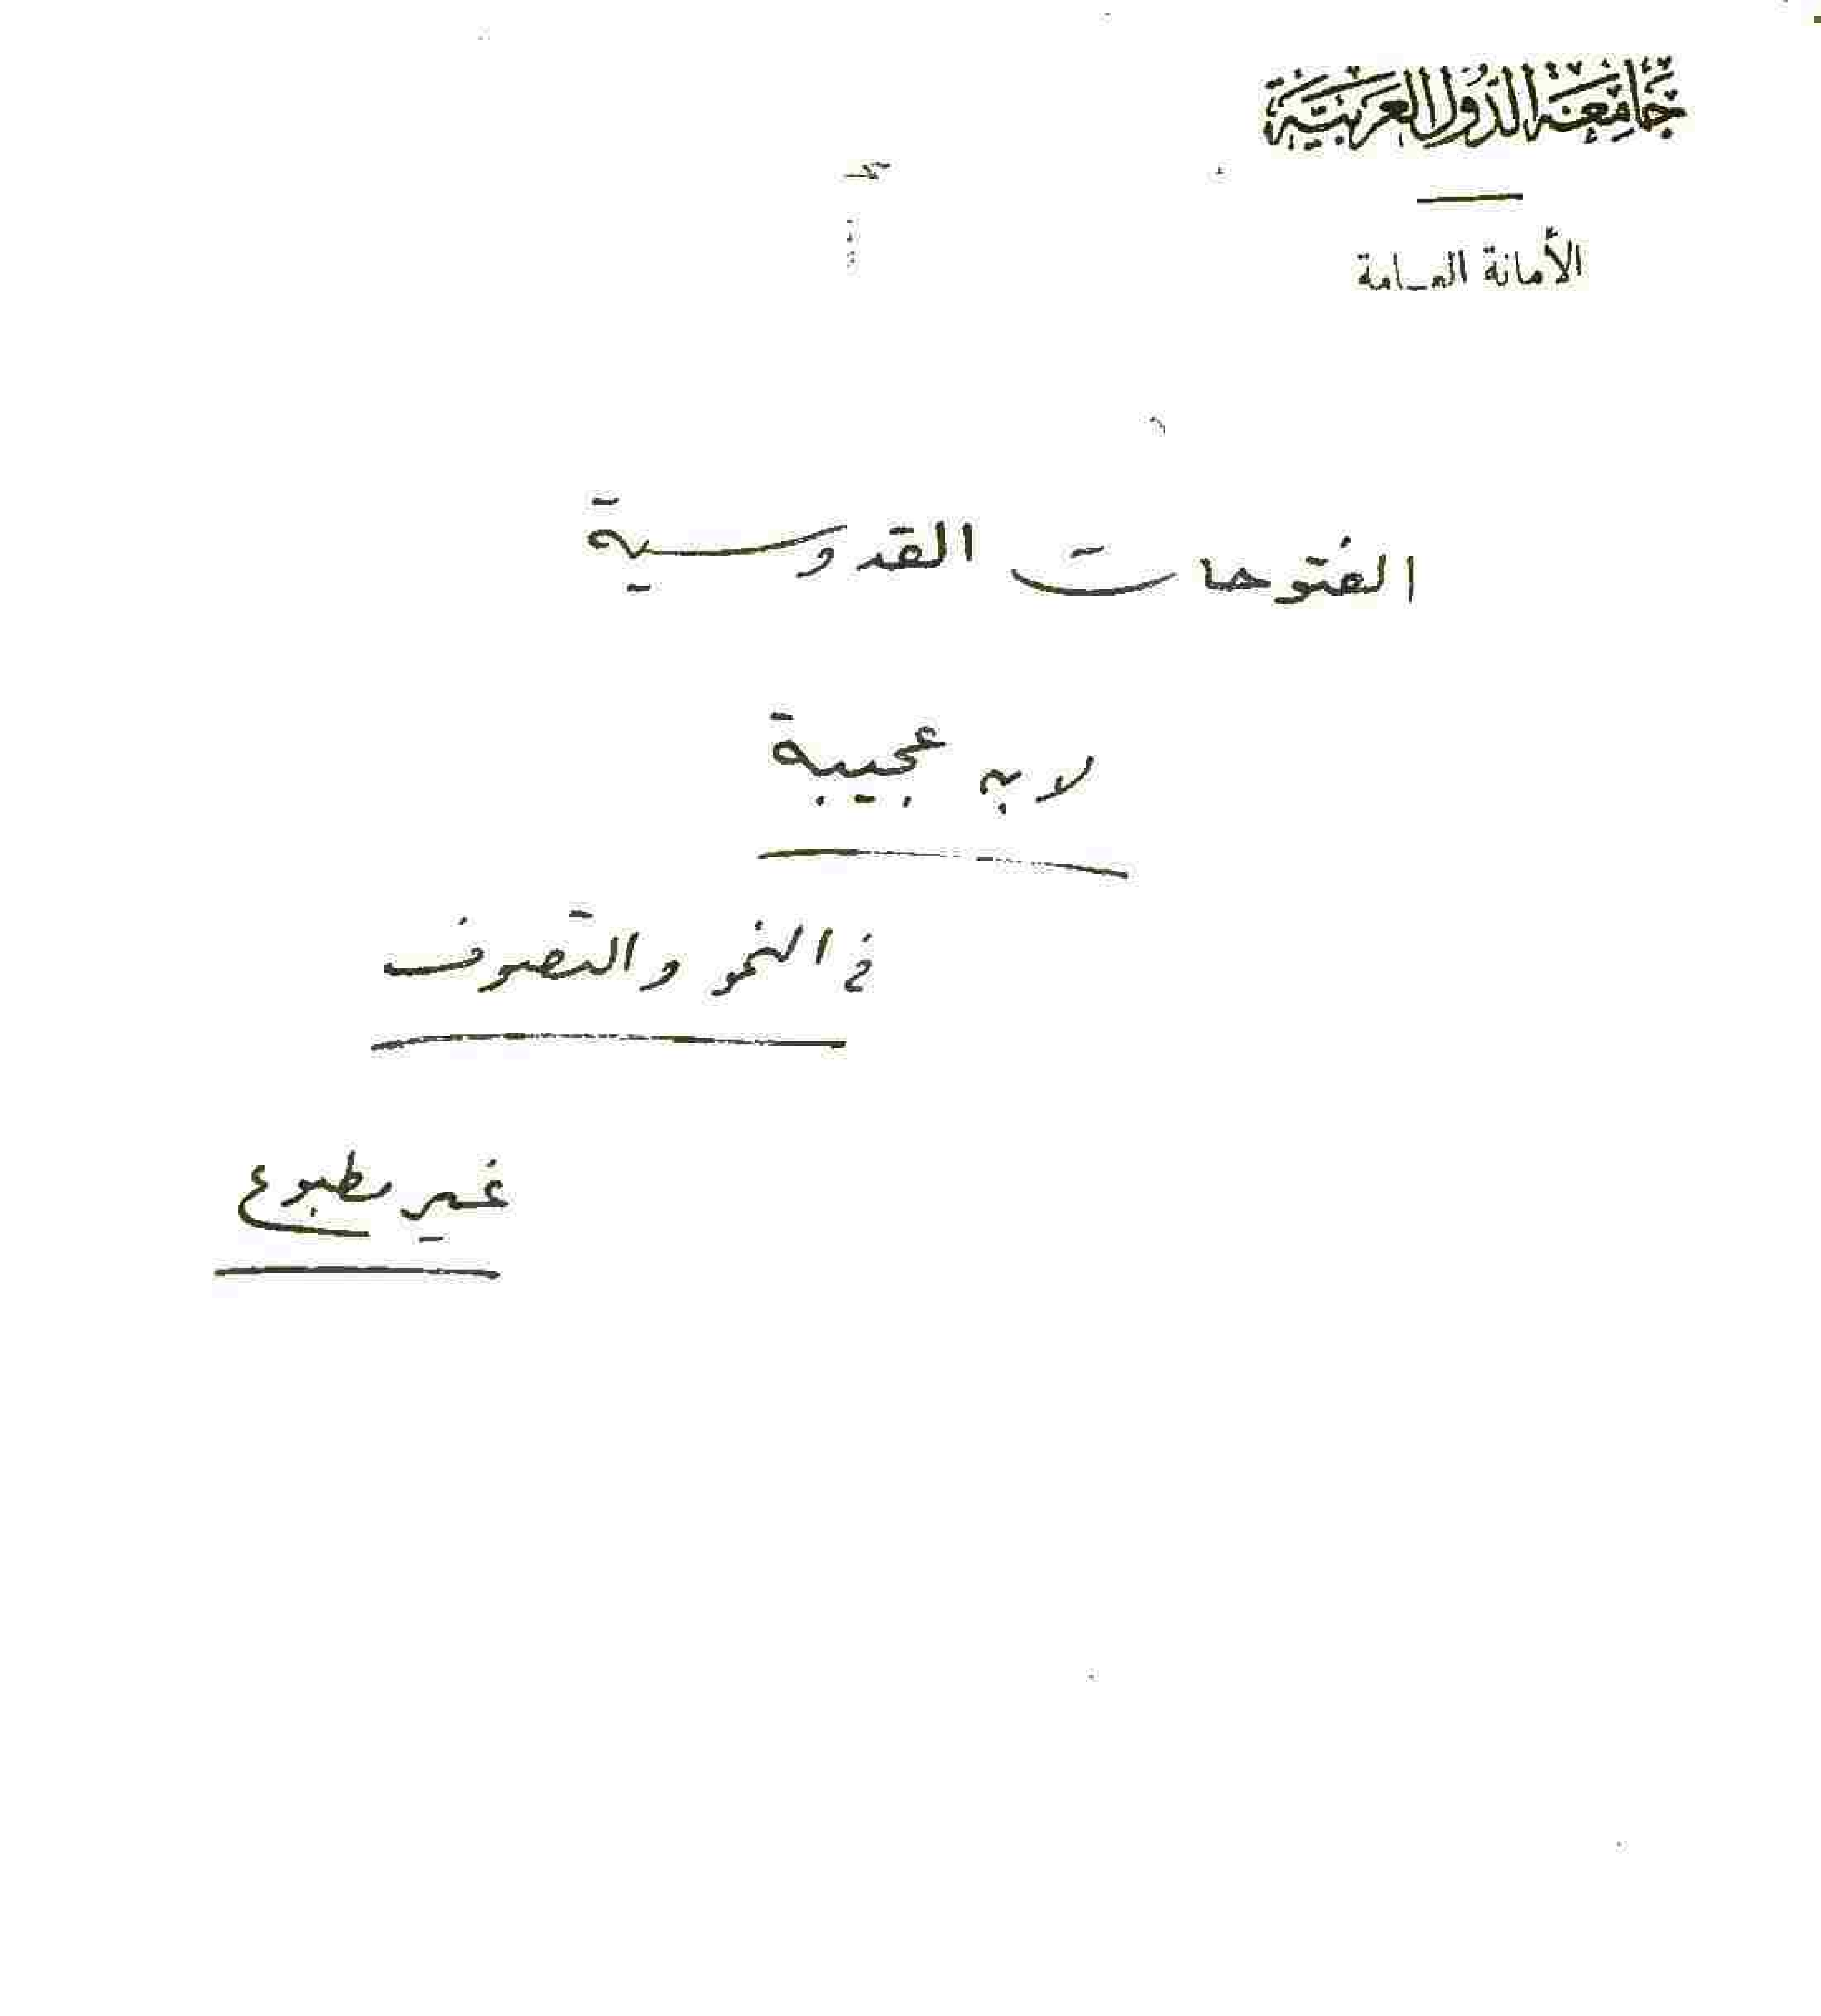 جَامِعَة الدُّوَل العَرَبيَّة
الأمانة العـامة
الفتوحات القدوسية
لابن عجيبة
في النحو والتصوف
غير مطبوع